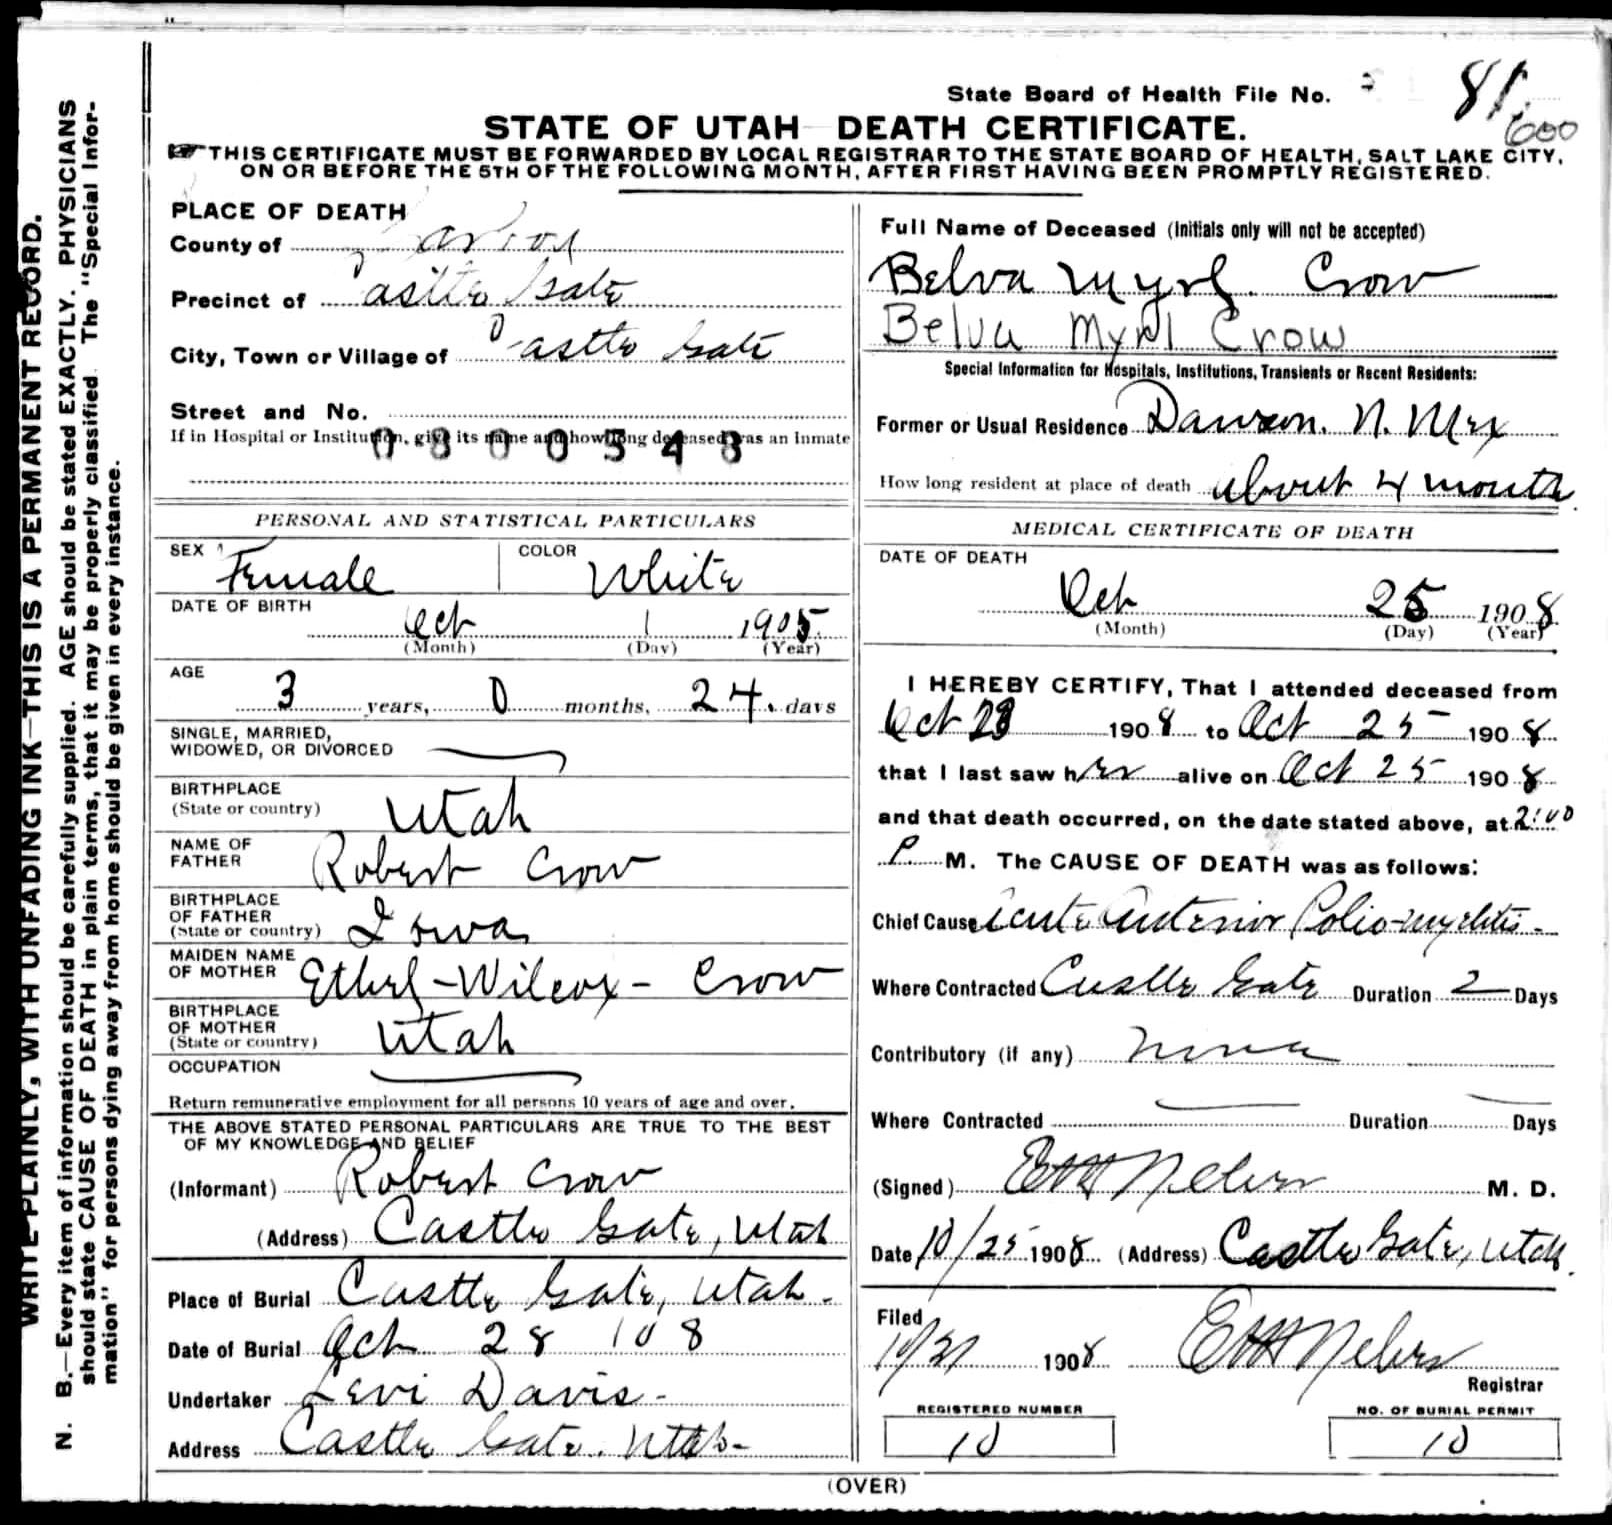 State Board of Health File No. 81
600
STATE OF UTAH DEATH CERTIFICATE.
THIS CERTIFICATE MUST BE FORWARDED BY LOCAL REGISTRAR TO THE STATE BOARD OF HEALTH, SALT LAKE CITY,
ON OR BEFORE THE 5TH OF THE FOLLOWING MONTH, AFTER FIRST HAVING BEEN PROMPTLY REGISTERED.
WRITE PLAINLY, WITH UNFADING INK—THIS IS A PERMANENT RECORD.
N. B.—Every item of information should be carefully supplied. AGE should be stated EXACTLY. PHYSICIANS
should state CAUSE OF DEATH in plain terms, that it may be properly classified. The "Special Infor-
mation" for persons dying away from home should be given in every instance.
PLACE OF DEATH
County of Carbon
Precinct of Castle Gate
City, Town or Village of Castle Gate
Street and No.
If in Hospital or Institution, give its name and how long deceased was an Inmate
0800548
PERSONAL AND STATISTICAL PARTICULARS
SEX Female COLOR White
DATE OF BIRTH
Oct 1 1905
(Month) (Day) (Year)
AGE
3 years, 0 months, 24 days
SINGLE, MARRIED,
WIDOWED, OR DIVORCED
BIRTHPLACE
(State or country) Utah
NAME OF
FATHER Robert Crow
BIRTHPLACE
OF FATHER
(State or country) Iowa
MAIDEN NAME
OF MOTHER Ethel-Wilcox- Crow
BIRTHPLACE
OF MOTHER
(State or country) Utah
OCCUPATION
Return remunerative employment for all persons 10 years of age and over.
THE ABOVE STATED PERSONAL PARTICULARS ARE TRUE TO THE BEST
OF MY KNOWLEDGE AND BELIEF
(Informant) Robert Crow
(Address) Castle Gate, Utah
Place of Burial Castle Gate, Utah-
Date of Burial Oct 28 108
Undertaker Levi Davis-
Address Castle Gate. Utah-
Full Name of Deceased (Initials only will not be accepted)
Belva Myrl Crow
Belva Myrl Crow
Special Information for Hospitals, Institutions, Transients or Recent Residents:
Former or Usual Residence Dawson. N. Mex
How long resident at place of death about 4 month
MEDICAL CERTIFICATE OF DEATH
DATE OF DEATH
Oct 25 1908
(Month) (Day) (Year)
I HEREBY CERTIFY, That I attended deceased from
Oct 23 1908 to Oct 25 1908
that I last saw her alive on Oct 25 1908
and that death occurred, on the date stated above, at 2:00
P. M. The CAUSE OF DEATH was as follows:
Chief Cause Acute Anterior Polio-myelitis-
Where Contracted Castle Gate Duration 2 Days
Contributory (if any) None
Where Contracted Duration Days
(Signed) M. D.
Date 10/25 1908 (Address) Castle Gate, Utah.
Filed
10/31 1908
Registrar
REGISTERED NUMBER
10
NO. OF BURIAL PERMIT
10
(OVER)